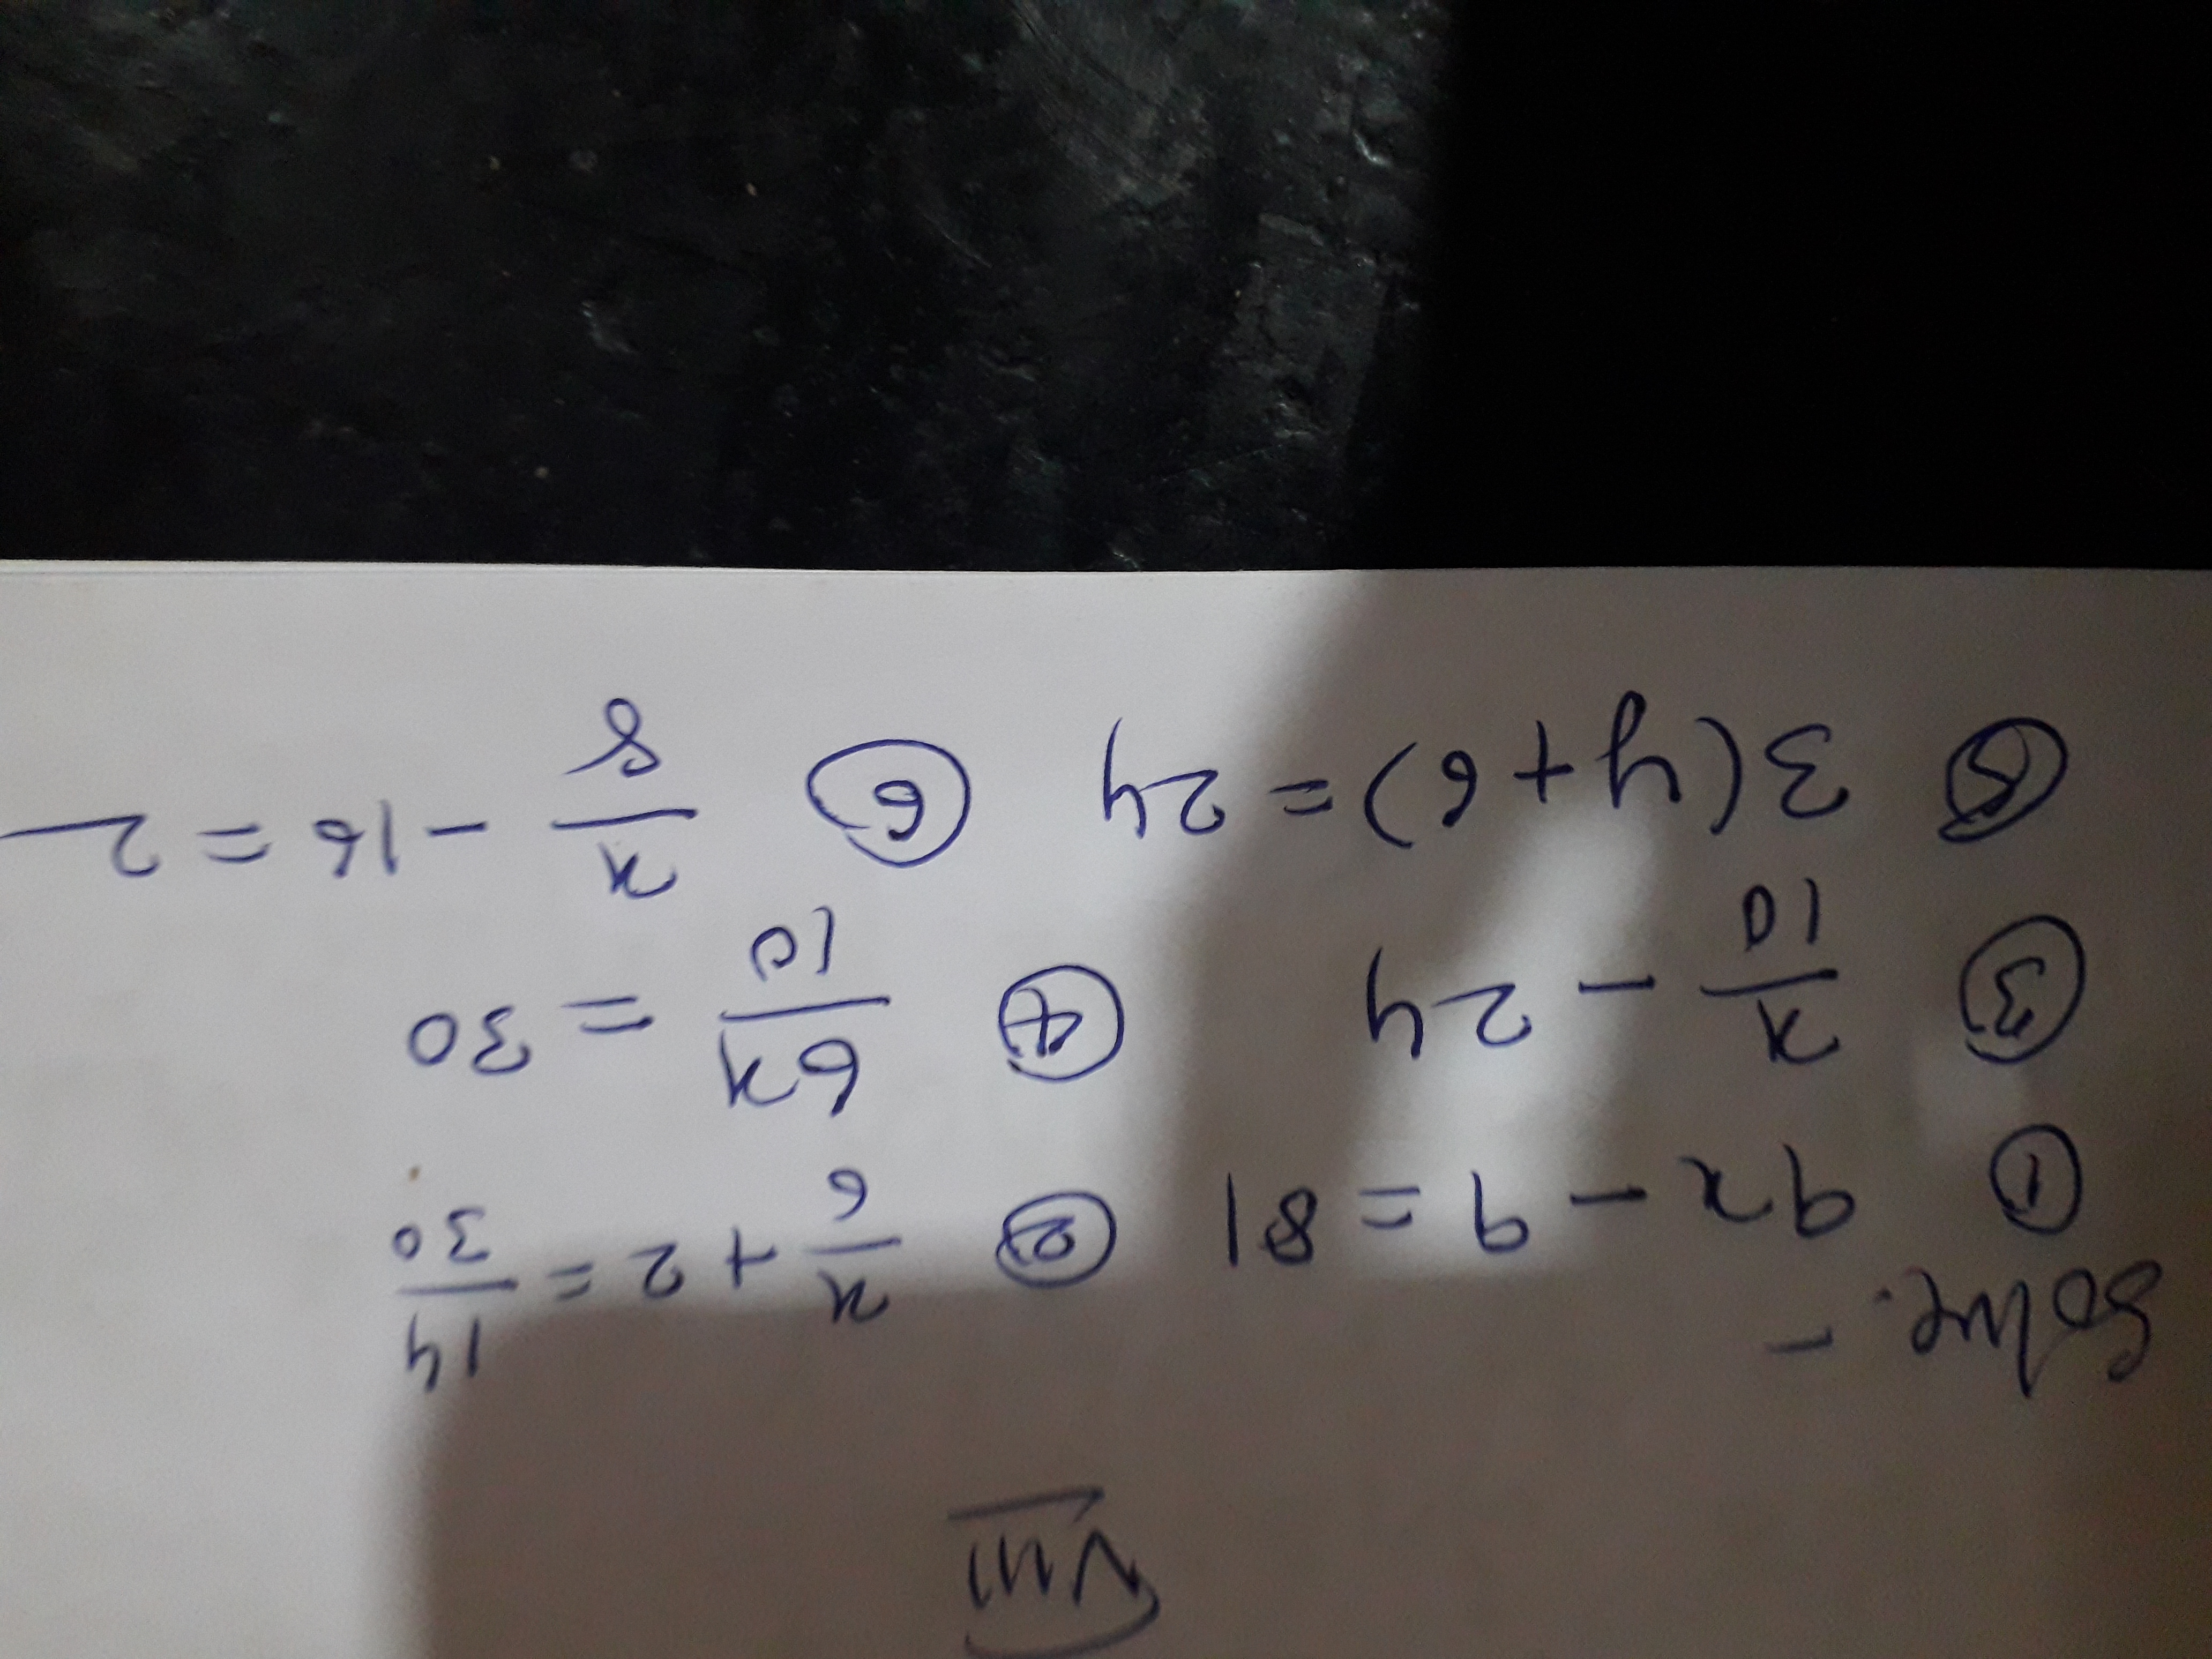 VIII
Solve. -
① 9x - 9 = 81 ② x/6 + 2 = 14/30
③ x/10 - 24 ④ 6x/10 = 30
⑤ 3(y+6) = 24 ⑥ x/8 - 16 = 2